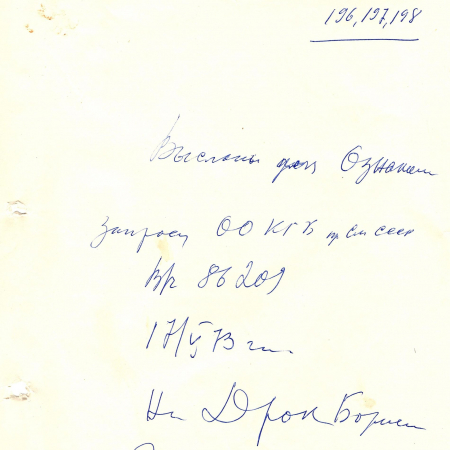 196, 197, 198
Высланы для Ознаком
Запросу ОО КГБ при См СССР
86209
17/V 73 г.
На Дрок Борис